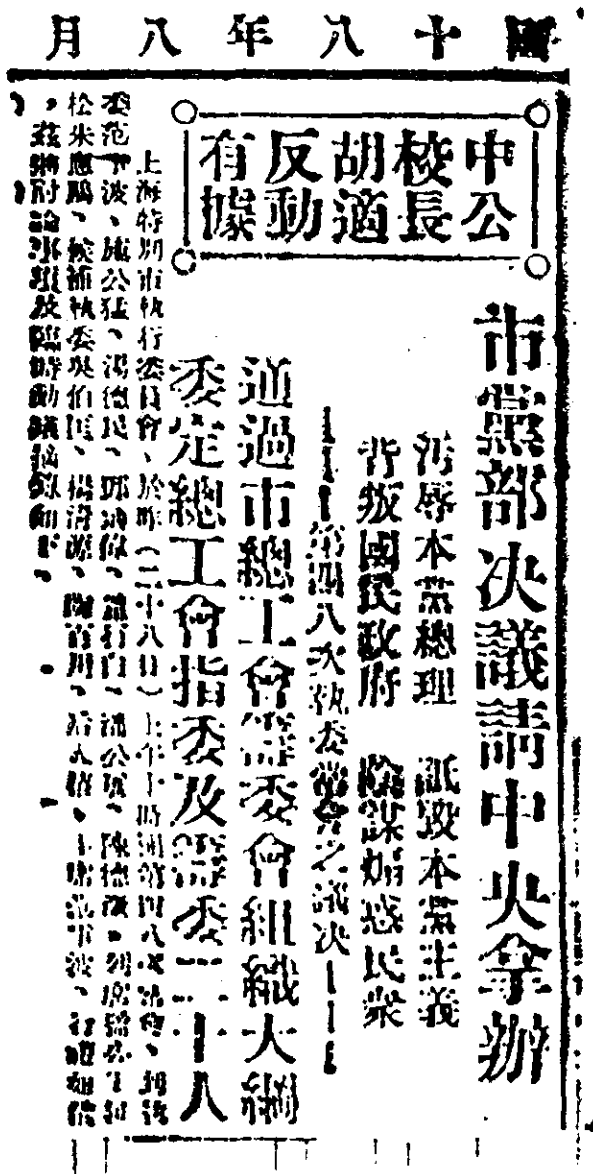 國十八年八月
中公
校長
胡適
反動
有據
市黨部決議請中央拿辦
污辱本黨總理 詆毀本黨主義
背叛國民政府 陰謀煽惑民衆
第四八次執委常會之議決
通過市總工會籌委會組織大綱
委定總工會指委及籌委二十人
上海特別市執行委員會、於昨(二十八日)上午十時開第四八次
委范 波、施公猛、湯德民、鄧 、潘公展、陳德徵、列席
松朱應鵬、候補執委吳伯匡、楊清源、陶百川、 、主席范 波、行禮如儀
，茲將討論事項及臨時動議摘錄如下、